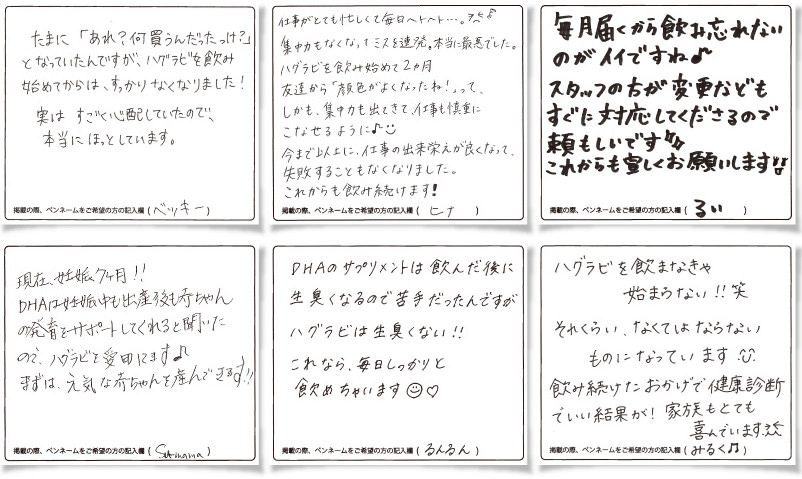 たまに「あれ？何買うんだったっけ？」
となっていたんですが、ハグラビを飲み
始めてからは、すっかりなくなりました！
実は すごく心配していたので、
本当にほっとしています。
掲載の際、ペンネームをご希望の方の記入欄（ベッキー）
仕事がとても忙しくて毎日ヘトヘト…。
集中力もなくなってミスを連発。本当に最悪でした。
ハグラビを飲み始めて2ヵ月
友達から「顔色がよくなったね！」って、
しかも、集中力も出てきて、仕事も慎重に
こなせるように♪
今まで以上に、仕事の出来栄えが良くなって、
失敗することもなくなりました。
これからも飲み続けます！
掲載の際、ペンネームをご希望の方の記入欄（ヒナ）
毎月届くから飲み忘れない
のがイイですね♪
スタッフの方が変更なども
すぐに対応してくださるので
頼もしいです!!
これからも宜しくお願いします!!
掲載の際、ペンネームをご希望の方の記入欄（るい）
現在、妊娠7ヶ月！！
DHAは妊娠中も出産後も赤ちゃん
の発育をサポートしてくれると聞いた
ので、ハグラビを愛用してます♪
まずは、元気な赤ちゃんを産んできます!!
掲載の際、ペンネームをご希望の方の記入欄（
DHAのサプリメントは飲んだ後に
生臭くなるので苦手だったんですが
ハグラビは生臭くない！！
これなら、毎日しっかりと
飲めちゃいます☺♡
掲載の際、ペンネームをご希望の方の記入欄（るんるん）
ハグラビを飲まなきゃ
始まらない！！笑
それくらい、なくてはならない
ものになっています
飲み続けたおかげで健康診断
でいい結果が！家族もとても
喜んでいます
掲載の際、ペンネームをご希望の方の記入欄（みるく♫）